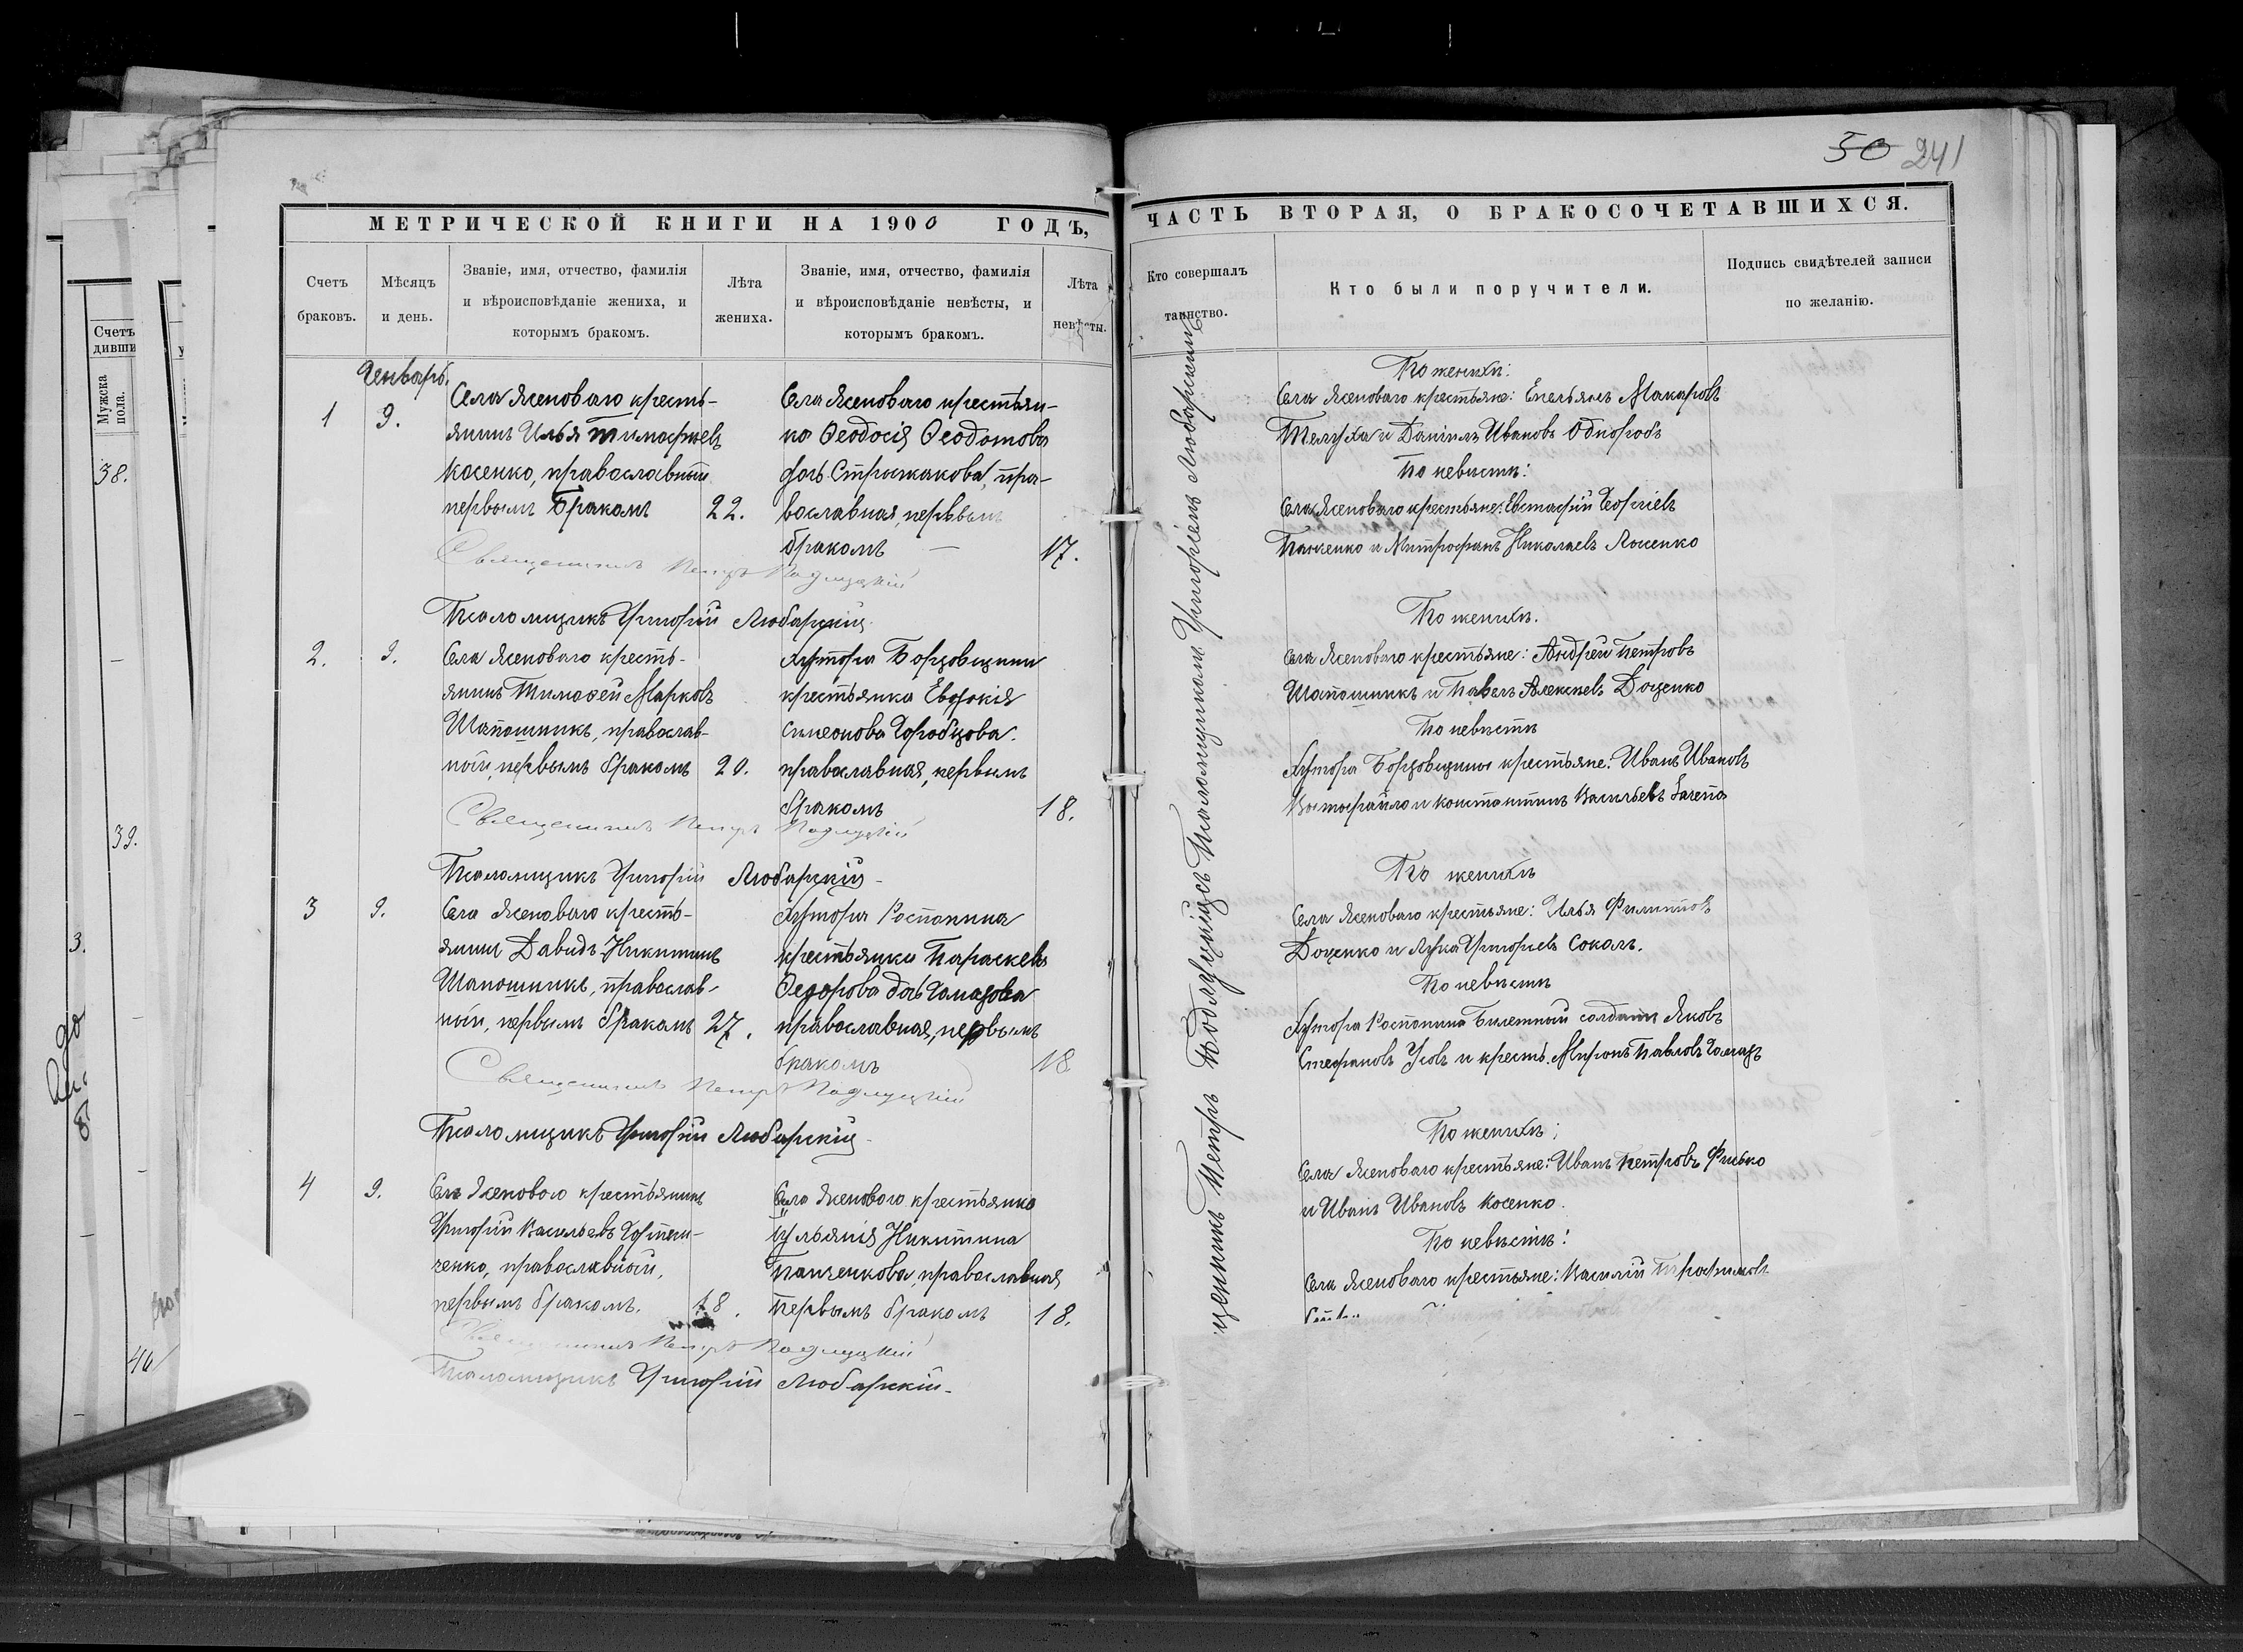 50 241
МЕТРИЧЕСКОЙ КНИГИ НА 1900 ГОДЪ,
Счетъ браковъ.
Мѣсяцъ и день.
Званіе, имя, отчество, фамилія
и вѣроисповѣданіе жениха, и
которымъ бракомъ.
Лѣта жениха.
Званіе, имя, отчество, фамилія
и вѣроисповѣданіе невѣсты, и
которымъ бракомъ.
Лѣта невѣсты.
Генварь.
1 9.
Села Ясеноваго кресть-
янинъ Илья Тимофеевъ
Косенко, православный
первымъ бракомъ 22.
Села Ясеноваго крестьян-
ка Ѳеодосія Ѳеодотова
дочь Стрижакова, пра-
вославная, первымъ
бракомъ — 17.
Священникъ Петръ Подлуцкій
Псаломщикъ Григорій Любарскій
2. 9.
Села Ясеноваго кресть-
янинъ Тимофей Марковъ
Шапошникъ, православ-
ный, первымъ бракомъ 20.
Хутора Борзовщины
крестьянка Евдокія
Симеонова Горобцова.
православная, первымъ
бракомъ 18.
Священникъ Петръ Подлуцкій
Псаломщикъ Григорій Любарскій
3 9.
Села Ясеноваго кресть-
янинъ Давидъ Никитинъ
Шапошникъ, православ-
ный, первымъ бракомъ 27.
Хутора Распопина
крестьянка Параскева
Ѳедорова дочь
православная, первымъ
бракомъ 18
Священникъ Петръ Подлуцкій
Псаломщикъ Григорій Любарскій
4 9.
Села Ясеноваго крестьянинъ
Григорій Васильевъ
ченко, православный,
первымъ бракомъ. 18.
Села Ясеноваго крестьянка
Ульянія Никитина
Панченкова, православная
первымъ бракомъ 18.
Священникъ Петръ Подлуцкій
Псаломщикъ Григорій Любарскій
ЧАСТЬ ВТОРАЯ, О БРАКОСОЧЕТАВШИХСЯ.
Кто совершалъ таинство.
Кто были поручители.
Подпись свидѣтелей записи
по желанію.
Петръ Подлуцкій съ Псаломщикомъ Григоріемъ Любарскимъ
По женихѣ:
Села Ясеноваго крестьяне: Емельянъ Макаровъ
Телуха и Даніилъ Ивановъ Однорогъ
По невѣстѣ:
Села Ясеноваго крестьяне: Евстафій Георгіевъ
Панченко и Митрофанъ Николаевъ Лосенко
По женихѣ.
Села Ясеноваго крестьяне: Андрей Петровъ
Шапошникъ и Павелъ Алексѣевъ Доценко
По невѣстѣ
Хутора Борзовщины крестьяне: Иванъ Ивановъ
и Константинъ Васильевъ
По женихѣ
Села Ясеноваго крестьяне: Илья Филиповъ
Доценко и Лука Григорьевъ Соколъ.
По невѣстѣ
Хутора Распопина билетный солдатъ Яковъ
Стефановъ Усовъ и крестьян. Миронъ Павловъ
По женихѣ:
Села Ясеноваго крестьяне: Иванъ Петровъ Фисько
и Иванъ Ивановъ Косенко.
По невѣстѣ:
Села Ясеноваго крестьяне: Василій Трофимовъ
Счетъ
Мужска пола.
38.
39.
3.
40